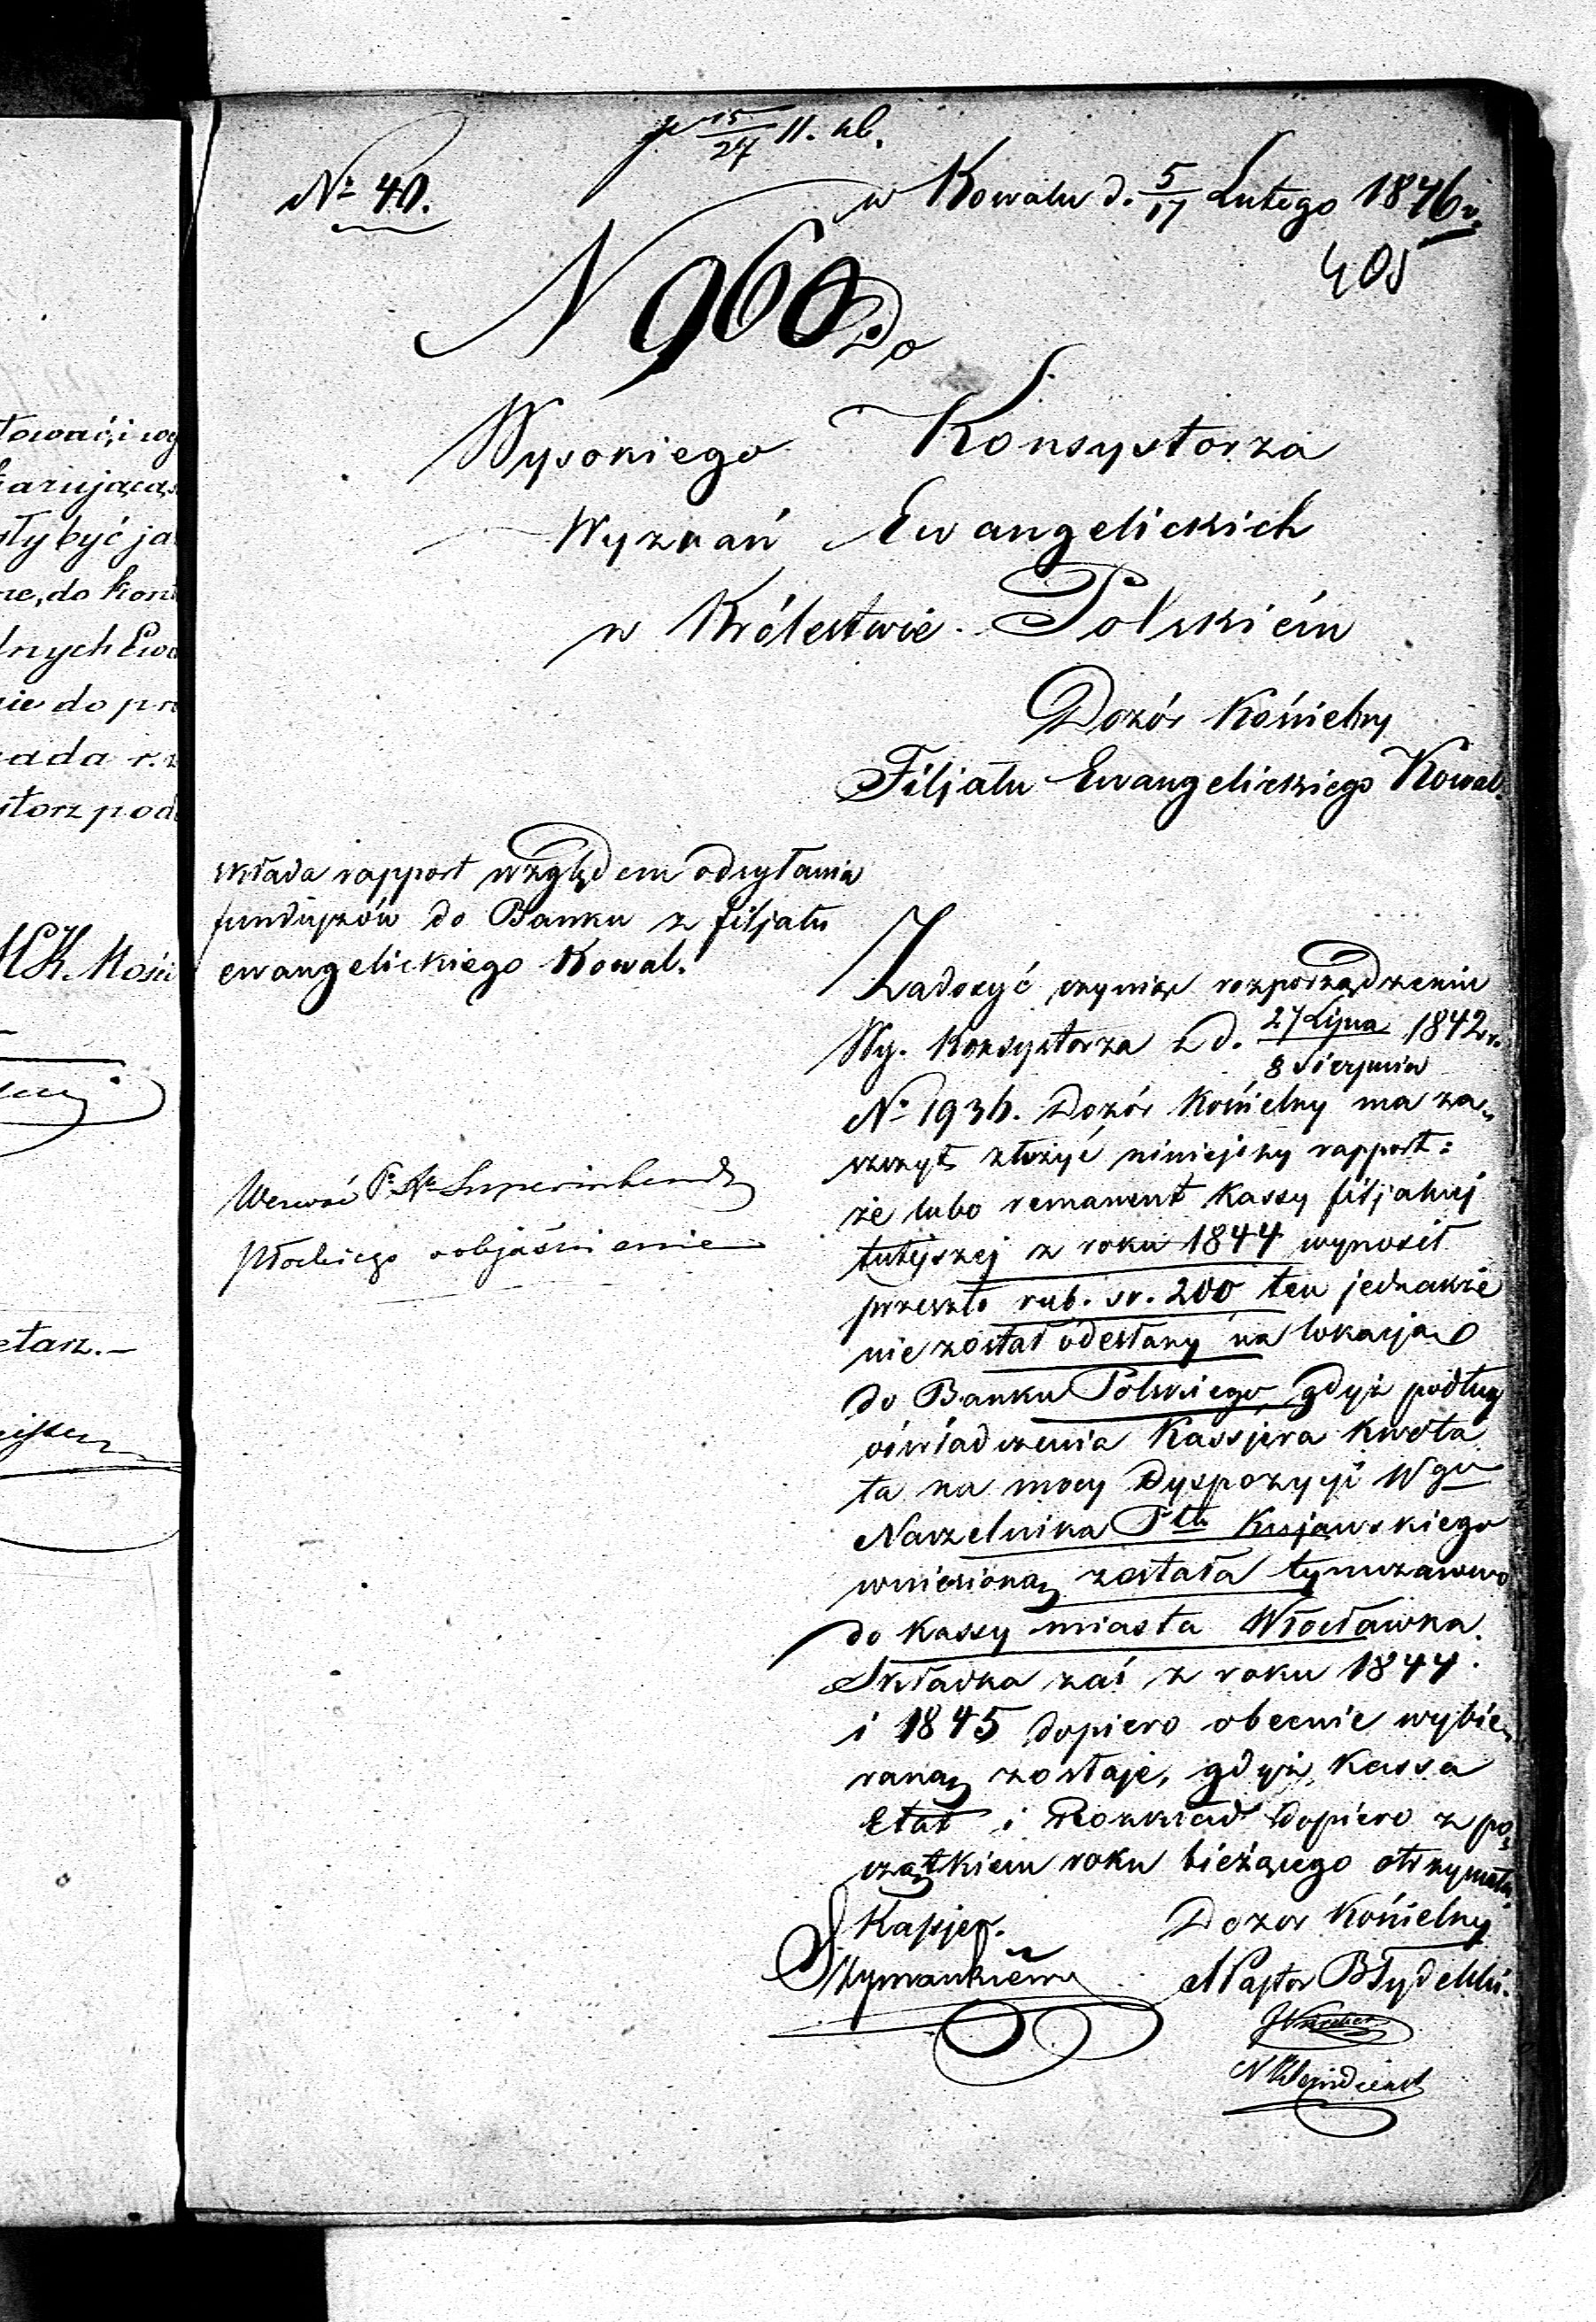 towaći wy
karująca
być ja
ne, do kon
lnych Ewa
nie do pr
ada r.
storz pod
Mości
etarz.—
p 15/27 II. ab.
№ 40.
w Kowalu d. 5/17 Lutego 1846 r.
405
N 960.
Do
Wysokiego Konsystorza
Wyznań Ewangelickich
w Królestwie Polskiém
Dozór Kościelny
Filjału Ewangelickiego Kowal.
składa rapport względem odsyłania
funduszów do Banku z filjału
ewangelickiego Kowal.
Wezwać Superintend
Płockiego o objaśnienie
Zadosyć czyniąc rozporządzeniu
Wy. Konsystorza z d. 27 Lipca / 8 Sierpnia 1842 r.
№ 1936. Dozór Kościelny ma za-
szczyt złożyć niniejszy rapport:
że lubo remanent Kassy filjalnej
tutejszej z roku 1844 wynosił
przeszło rub. sr. 200 ten jednakże
nie został odesłany na lokacją
do Banku Polskiego, gdyż podług
oświadczenia Kassjera kwota
ta na mocy Dyspozycyi Wgo
Naczelnika Ptu Kujawskiego
wniesioną została tymczasowo
do Kassy miasta Włocławka.
Składka zaś z roku 1844
i 1845 dopiero obecnie wybie-
raną zostaje, gdyż Kassa
Etat i Rozkład dopiero z po-
czątkiem roku bieżącego otrzymała.
Kassjer.
Dozor Kościelny
Szymankiewicz
Pastor